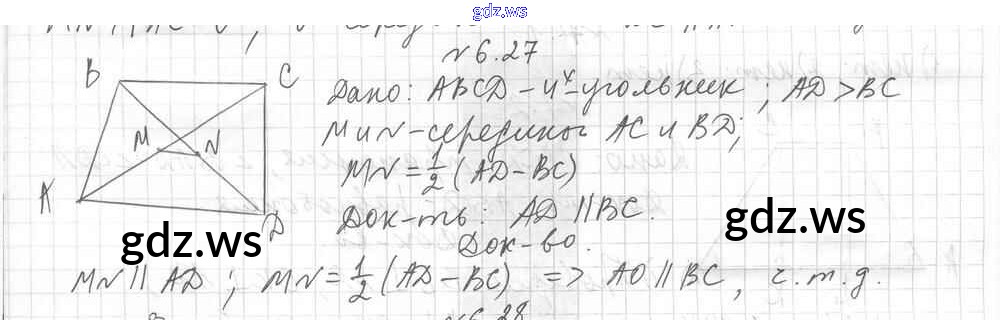 gdz.ws
N 6.27
B
C
Дано: ABCD - 4х-угольник ; AD > BC
M и N - середины AC и BD;
M
N
MN = 1/2 (AD - BC)
A
D
Док-ть: AD || BC.
gdz.ws
gdz.ws
Док-во.
MN || AD ; MN = 1/2 (AD - BC) => AD || BC, ч.т.д.
N 6.28